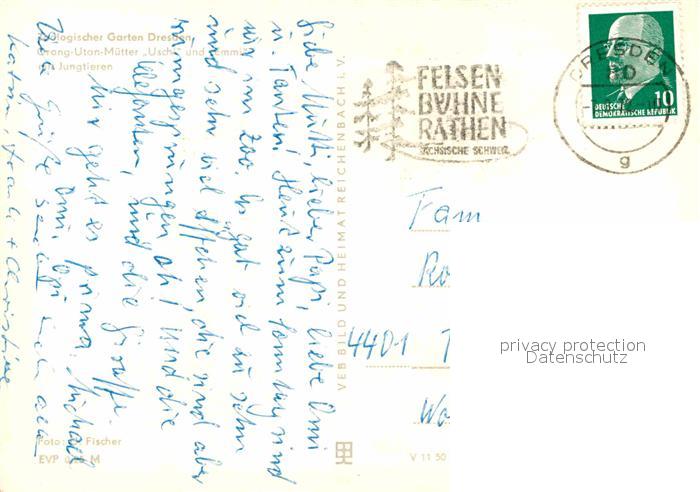 Zoologischer Garten Dresden
Orang-Utan-Mütter „Uschi" und „Emmi"
mit Jungtieren
Liebe Mutti, lieber Papi, liebe Omi
u. Tanten! Heut zum Sonntag sind
wir im Zoo. Es gibt viel zu sehn
und sehr viel Affchen, die sind aber
ab! Und die
Elefanten, und die Giraffe.
Mir geht es prima. Michael
Viele Grüße
Katrin, Frank + Christine
Foto: Fischer
EVP M
VEB BILD UND HEIMAT REICHENBACH I. V.
V 11 50
FELSEN
BÜHNE
RATHEN
SÄCHSISCHE SCHWEIZ
DRESDEN
BD
g
10
DEUTSCHE
DEMOKRATISCHE REPUBLIK
Fam
Ro
4401 T
Wa
privacy protection
Datenschutz